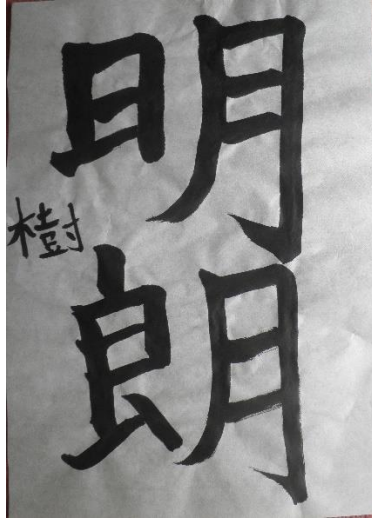 明朗
樹